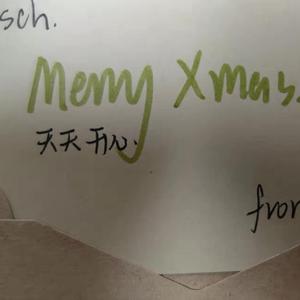 sch.
Merry Xmas.
天天开心.
from